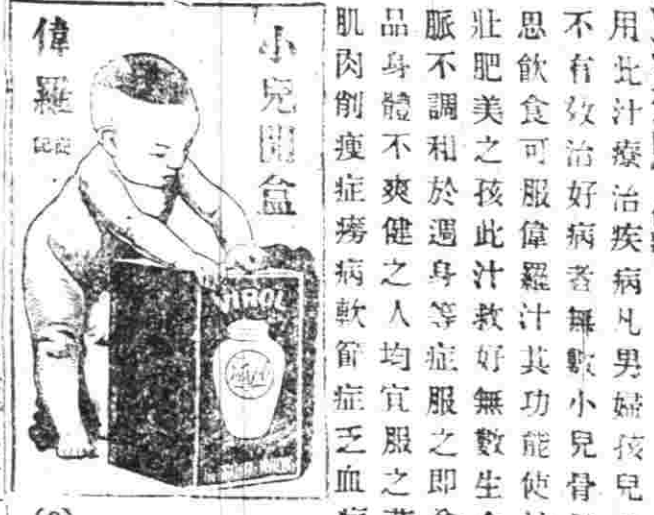 用此汁療治疾病凡男婦孩兒
不有效治好病者無數小兒骨
思飲食可服偉羅汁其功能使
壯肥美之孩此汁救好無數生
脈不調和於週身等症服之即
品身體不爽健之人均宜服之
肌肉削瘦症癆病軟節症乏血病
小兒開盒
偉羅
VIROL